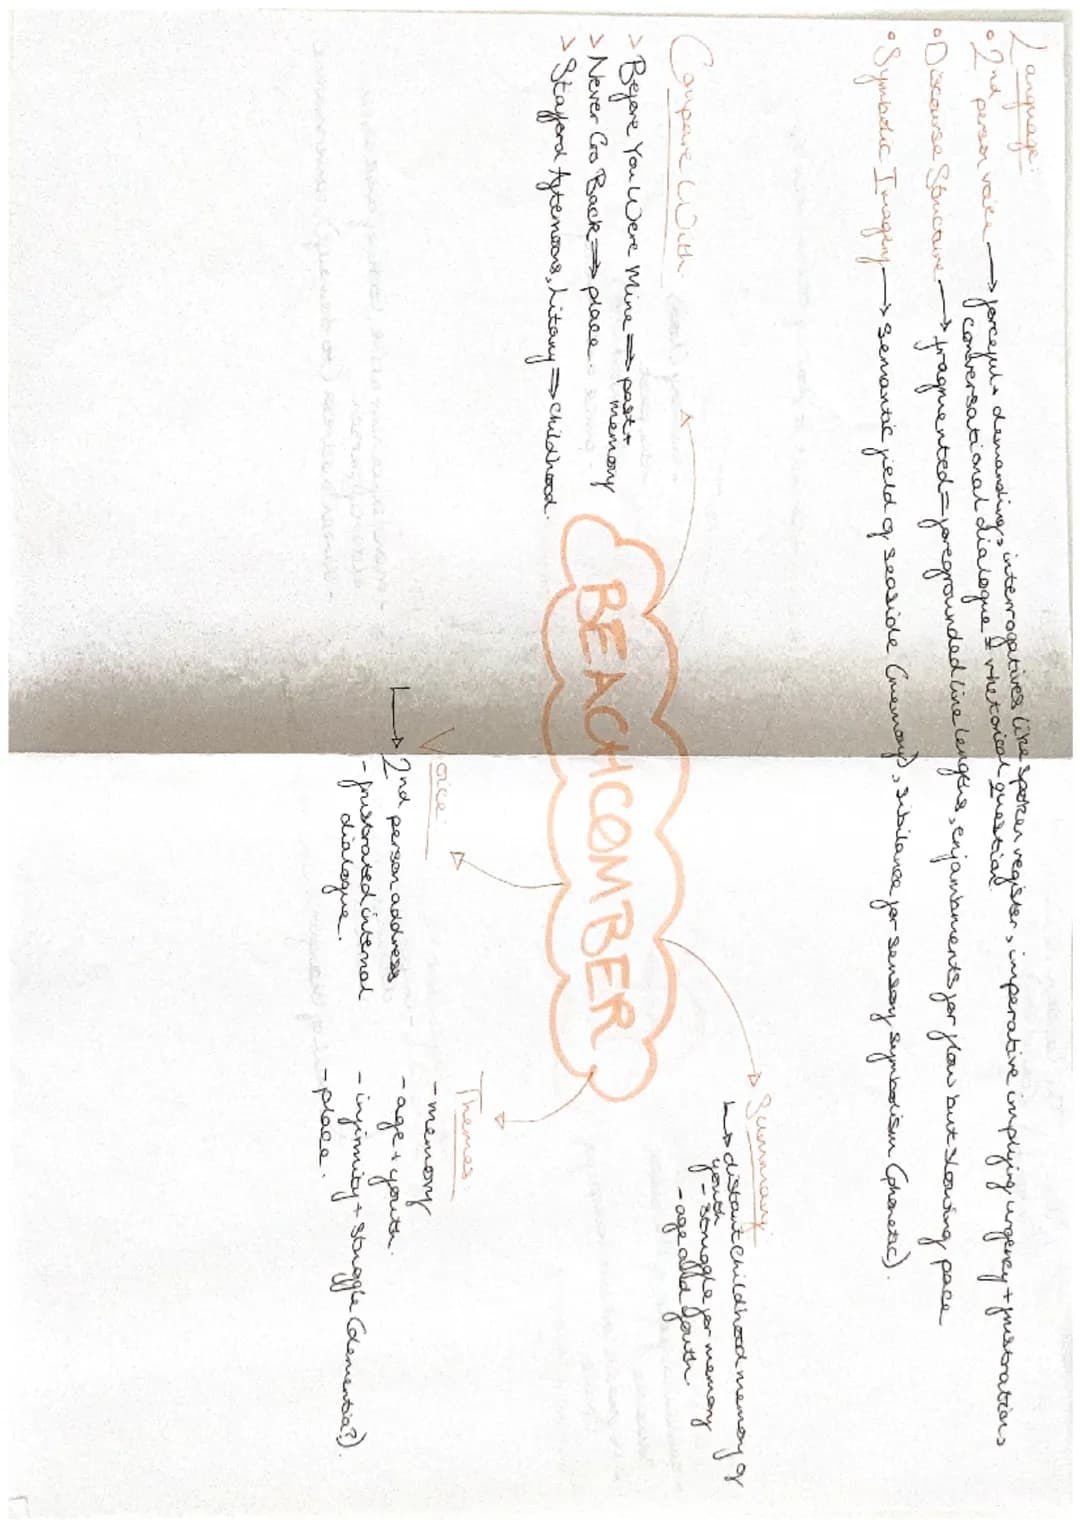 Language:
• 2nd person voice → forceful + demanding, interrogatives like spoken register, imperative implying urgency + frustrations,
conversational dialogue + rhetorical question.
• Discourse Structure → fragmented = foregrounded line lengths, enjambments for flow but slowing pace
• Symbolic Imagery → semantic field of seaside (memory), sibilance for sensory symbolism (phonetic).
Compare With:
> Before You Were Mine ⇒ past +
memory
> Never Go Back ⇒ place.
> Stafford Afternoons, Litany ⇒ childhood.
BEACHCOMBER
Summary:
↳ distant childhood memory of
youth
- struggle for memory
- age and youth.
Voice:
↳ 2nd person address
- frustrated internal
dialogue.
Themes:
- memory
- age + youth.
- infirmity + struggle (dementia?).
- place.